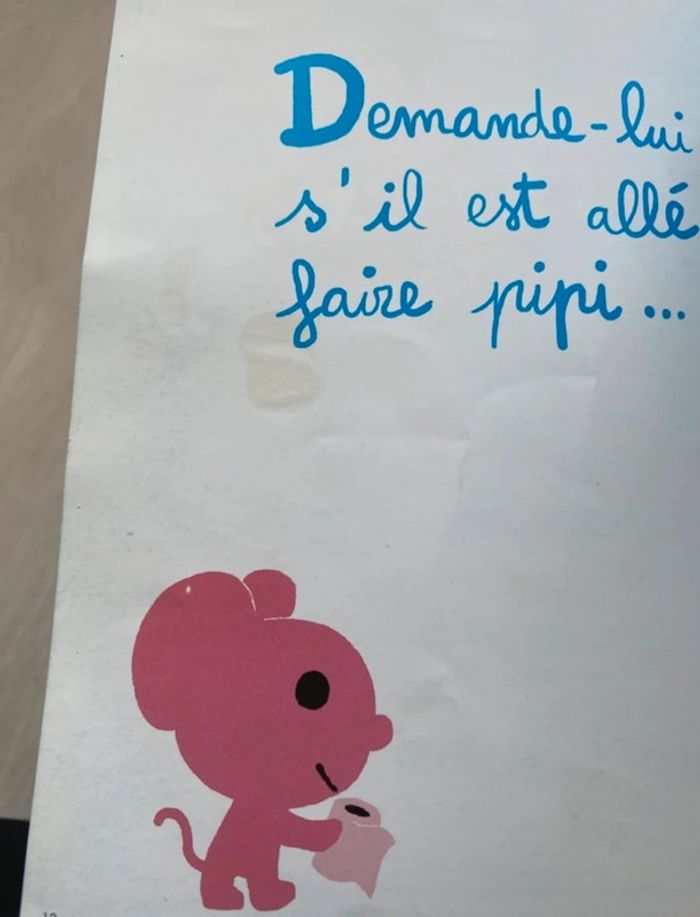 Demande-lui
s'il est allé
faire pipi...